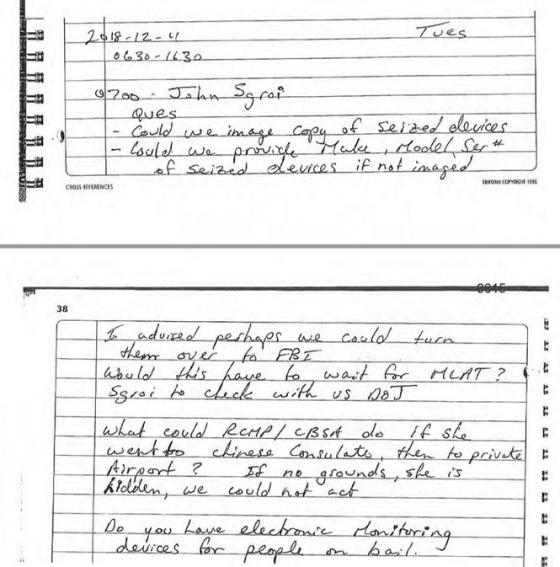 2018-12-4 Tues
0630-1630
0700 - John Sgroi
Ques
- Could we image copy of seized devices
- Could we provide Make, Model, Ser #
of seized devices if not imaged
CROSS REFERENCES TRIFORM COPYRIGHT 1995
38
I advised perhaps we could turn
them over to FBI
Would this have to wait for MLAT?
Sgroi to check with US DOJ
What could RCMP/CBSA do if she
went to Chinese Consulate, then to private
Airport? If no grounds, she is
hidden, we could not act
Do you have electronic Monitoring
devices for people on bail.